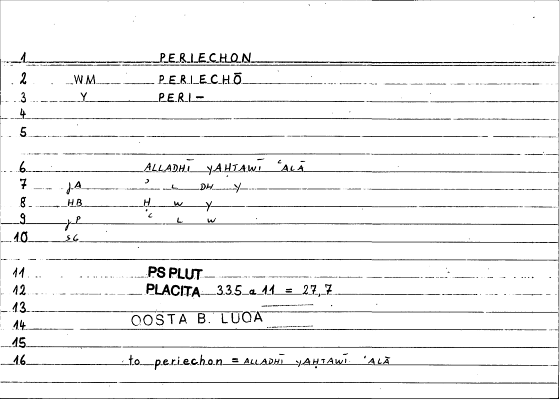 1 PERIECHON
2 WM PERIECHŌ
3 Y PERI-
4
5
6 ALLADHĪ YAHTAWĪ ʿALĀ
7 jA ʾ L DH Y
8 HB H W Y
9 jP ʿ L W
10 SG
11 PS PLUT
12 PLACITA 335 a 11 = 27,7
13
14 QOSTA B. LUQA
15
16 to periechon = ALLADHĪ YAḤTAWĪ ʿALĀ